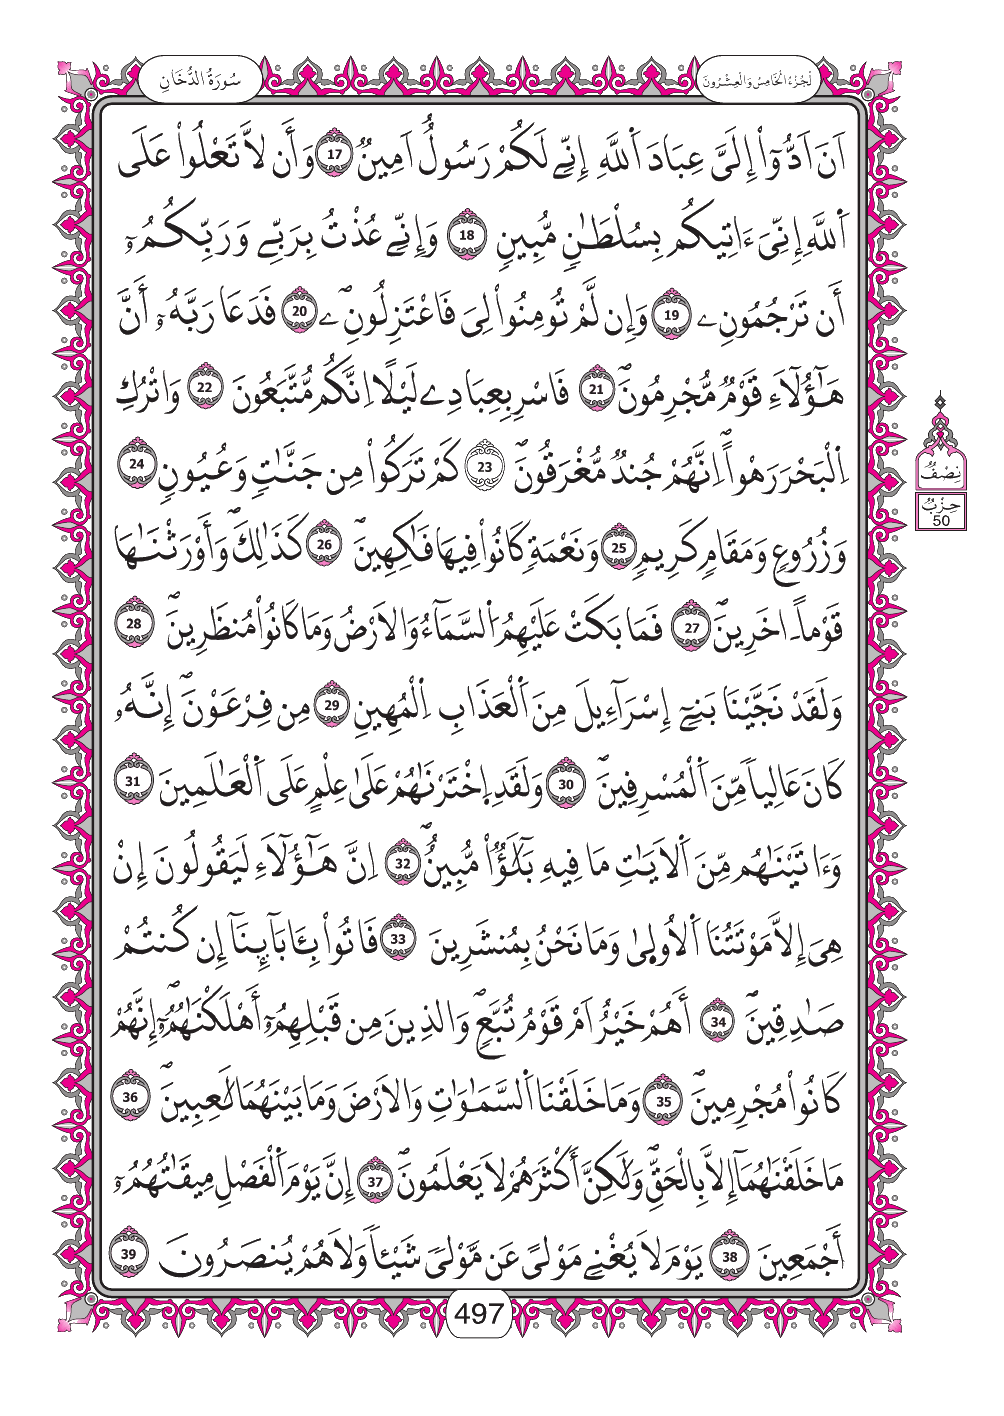 سُورَةُ الدُّخَانِ
لَجُزءُ الْخَامِسُ وَالْعِشْرُونَ
اَنَ اَدُّوٓاْ إِلَيَّ عِبَادَ اَ۬للَّهِ إِنِّے لَكُمْ رَسُولٌ اَمِينٌ 17 وَأَن لَّا تَعْلُواْ عَلَى
اَ۬للَّهِ إِنِّيَ ءَاتِيكُم بِسُلْطَٰنٖ مُّبِينٖ 18 وَإِنِّے عُذْتُ بِرَبِّے وَرَبِّكُمُۥٓ
أَن تَرْجُمُونِۦ 19 وَإِن لَّمْ تُومِنُواْ لِيَ فَاعْتَزِلُونِۦ 20 فَدَعَا رَبَّهُۥٓ أَنَّ
هَٰٓؤُلَآءِ قَوْمٌ مُّجْرِمُونَ 21 فَاسْرِ بِعِبَادِے لَيْلًا اِنَّكُم مُّتَّبَعُونَ 22 وَاتْرُكِ
اِ۬لْبَحْرَ رَهْواً اِنَّهُمْ جُندٌ مُّغْرَقُونَ 23 كَمْ تَرَكُواْ مِن جَنَّٰتٖ وَعُيُونٖ 24
وَزُرُوعٖ وَمَقَامٖ كَرِيمٖ 25 وَنَعْمَةٖ كَانُواْ فِيهَا فَٰكِهِينَ 26 كَذَٰلِكَ وَأَوْرَثْنَٰهَا
قَوْماً ـ اخَرِينَ 27 فَمَا بَكَتْ عَلَيْهِمُ اُ۬لسَّمَآءُ وَالَارْضُ وَمَا كَانُواْ مُنظَرِينَ 28
وَلَقَدْ نَجَّيْنَا بَنِےٓ إِسْرَآءِيلَ مِنَ اَ۬لْعَذَابِ اِ۬لْمُهِينِ 29 مِن فِرْعَوْنَ إِنَّهُۥ
كَانَ عَالِياً مِّنَ اَ۬لْمُسْرِفِينَ 30 وَلَقَدِ اِ۪خْتَرْنَٰهُمْ عَلَىٰ عِلْمٍ عَلَى اَ۬لْعَٰلَمِينَ 31
وَءَاتَيْنَٰهُم مِّنَ اَ۬لَايَٰتِ مَا فِيهِ بَلَٰٓؤٌاْ مُّبِينٌ 32 اِنَّ هَٰٓؤُلَآءِ لَيَقُولُونَ إِنْ
هِيَ إِلَّا مَوْتَتُنَا اَ۬لُاولىٰ وَمَا نَحْنُ بِمُنشَرِينَ 33 فَاتُواْ بِـَٔابَآئِنَآ إِن كُنتُمْ
صَٰدِقِينَ 34 أَهُمْ خَيْرٌ اَمْ قَوْمُ تُبَّعٖ وَالذِينَ مِن قَبْلِهِمُۥٓ أَهْلَكْنَٰهُمُۥٓ إِنَّهُمْ
كَانُواْ مُجْرِمِينَ 35 وَمَا خَلَقْنَا اَ۬لسَّمَٰوَٰتِ وَالَارْضَ وَمَا بَيْنَهُمَا لَٰعِبِينَ 36
مَا خَلَقْنَٰهُمَآ إِلَّا بِالْحَقِّ وَلَٰكِنَّ أَكْثَرَهُمْ لَا يَعْلَمُونَ 37 إِنَّ يَوْمَ اَ۬لْفَصْلِ مِيقَٰتُهُمُۥٓ
أَجْمَعِينَ 38 يَوْمَ لَا يُغْنِے مَوْلىً عَن مَّوْلىً شَيْـٔاً وَلَا هُمْ يُنصَرُونَ 39
نِصْفُ
حِزْبُ
50
497